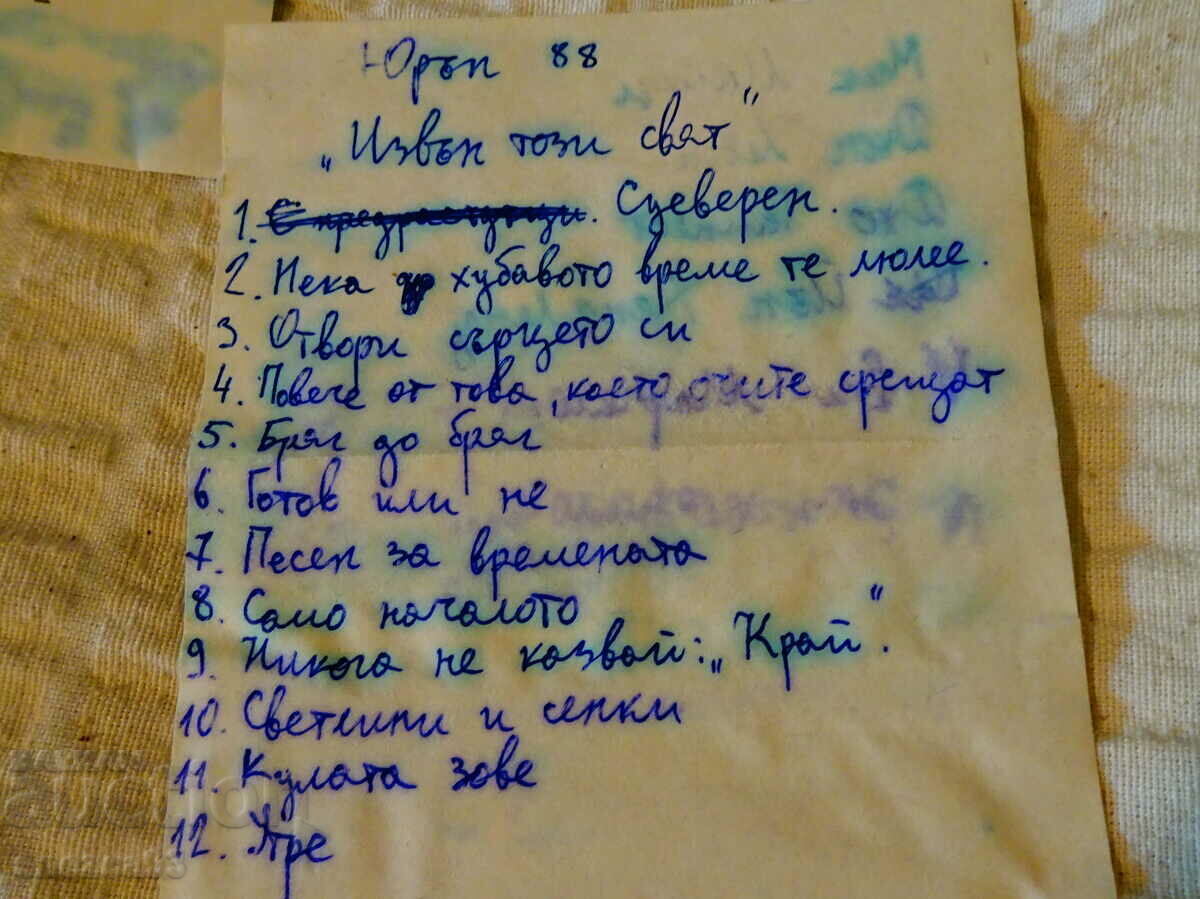 Юръп 88
„Извън този свят"
1. С предразсъдъци. Суеверен.
2. Нека хубавото време те люлее.
3. Отвори сърцето си
4. Повече от това, което очите срещат
5. Бряг до бряг
6. Готов или не
7. Песен за времената
8. Само началото
9. Никога не казвай: „Край".
10. Светлини и сенки
11. Кулата зове
12. Утре